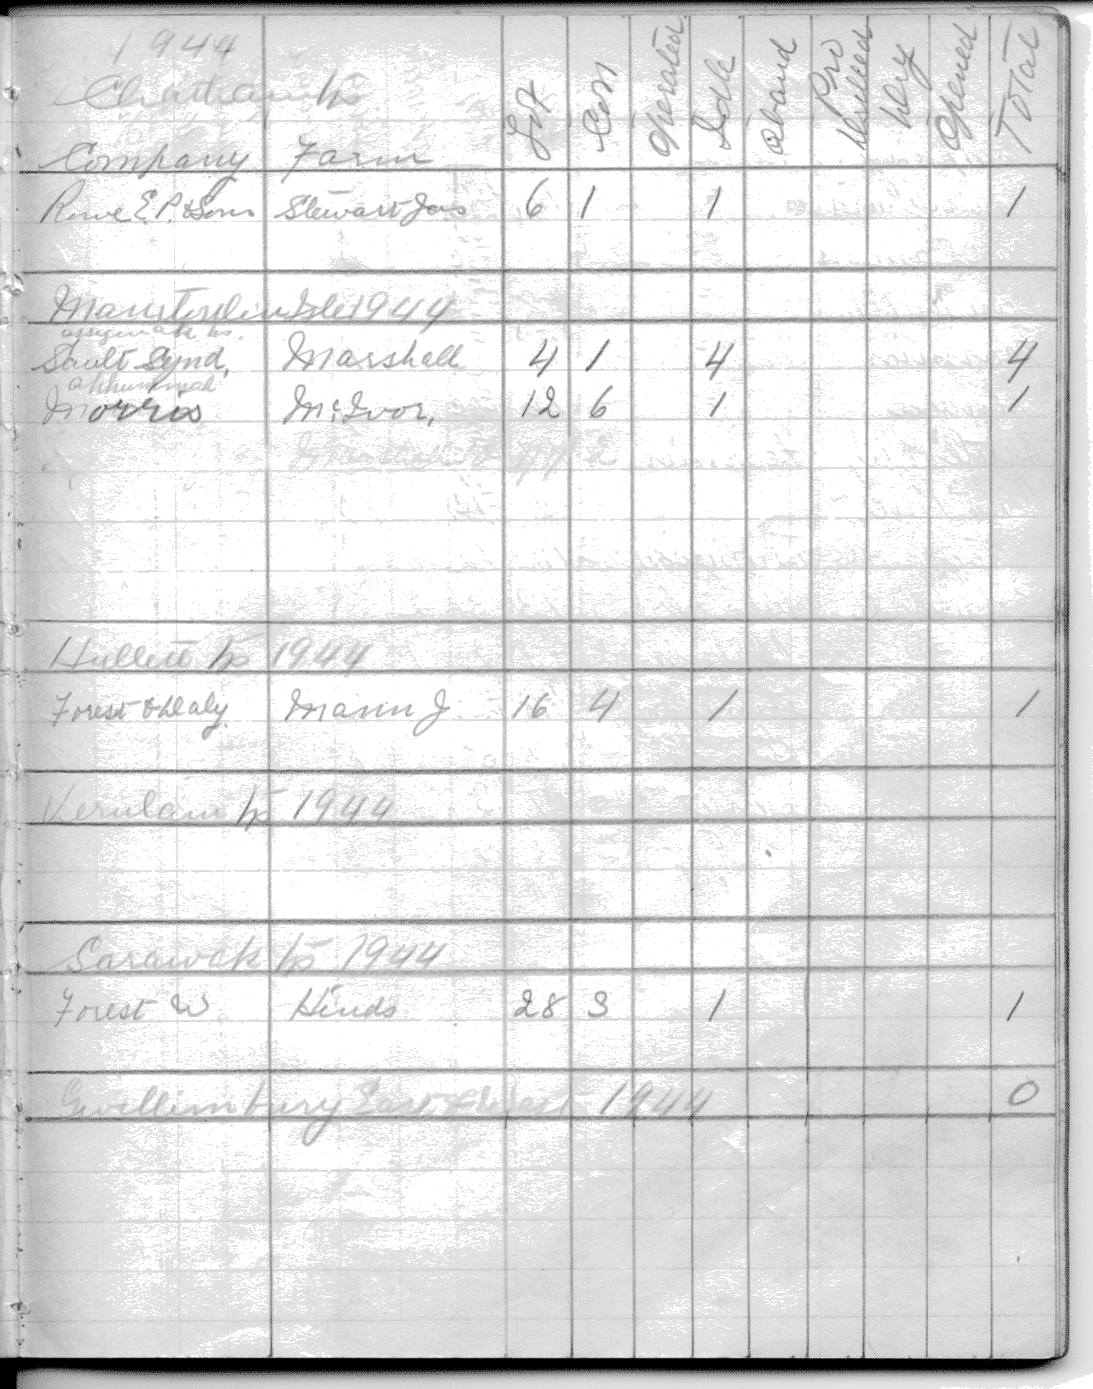 1944
Chatham Tp
Company Farm Lot Con Operated Idle Aband Pro Drilled Dry Opened Total
Rowe E. P. & Sons Stewart Jas 6 1 1 1
Manitoulin Isle 1944
Assiginack Tp.
Sault Synd, Marshall 4 1 4 4
Morris McIvor, 12 6 1 1
Hullett Tp 1944
Forest & Daly Mann J 16 4 1 1
Verulam Tp 1944
Sarawak Tp 1944
Forest W Hinds 28 3 1 1
Gwillimbury East & West 1944 0